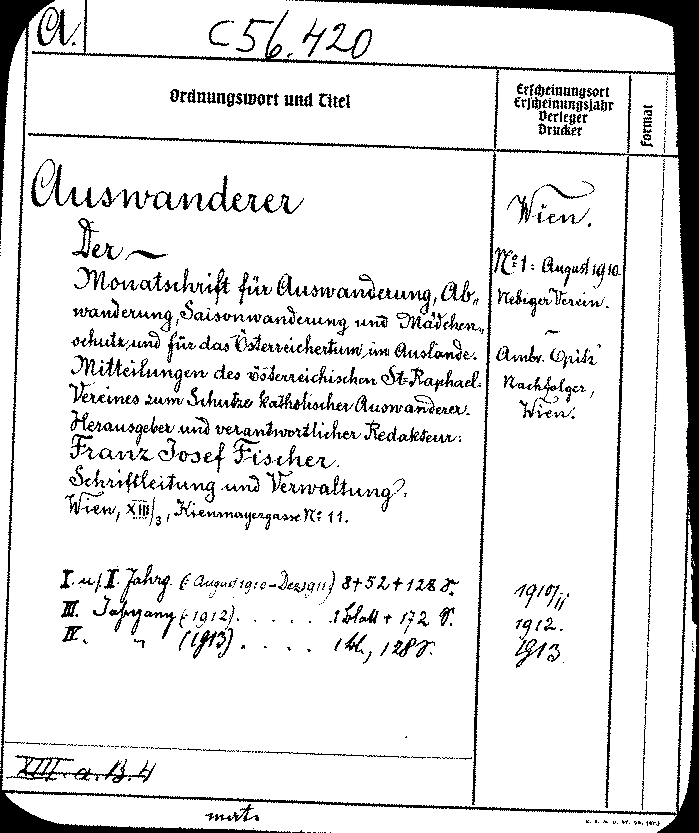 A.
C 56.420
Ordnungswort und Titel
Erscheinungsort
Erscheinungsjahr
Verleger
Drucker
Format
Auswanderer
Der —
Monatschrift für Auswanderung, Ab-
wanderung, Saisonwanderung und Mädchen-
schutz und für das Österreichertum im Auslande.
Mitteilungen des österreichischen St. Raphael-
Vereines zum Schutze katholischer Auswanderer.
Herausgeber und verantwortlicher Redakteur:
Franz Josef Fischer.
Schriftleitung und Verwaltung:
Wien, XIII/3, Kienmayergasse No 11.
Wien.
No 1: August 1910.
Nebiger Verein.
—
Ambr. Opitz'
Nachfolger,
Wien.
I. u. II. Jahrg. (August 1910-Dez. 1911) 8+52+128 S. 1910/11
III. Jahrgang (1912). . . . . . 1 Blatt + 172 S. 1912.
IV. " (1913) . . . . . 1 Bl., 128 S. 1913.
XIII. a. B. 4